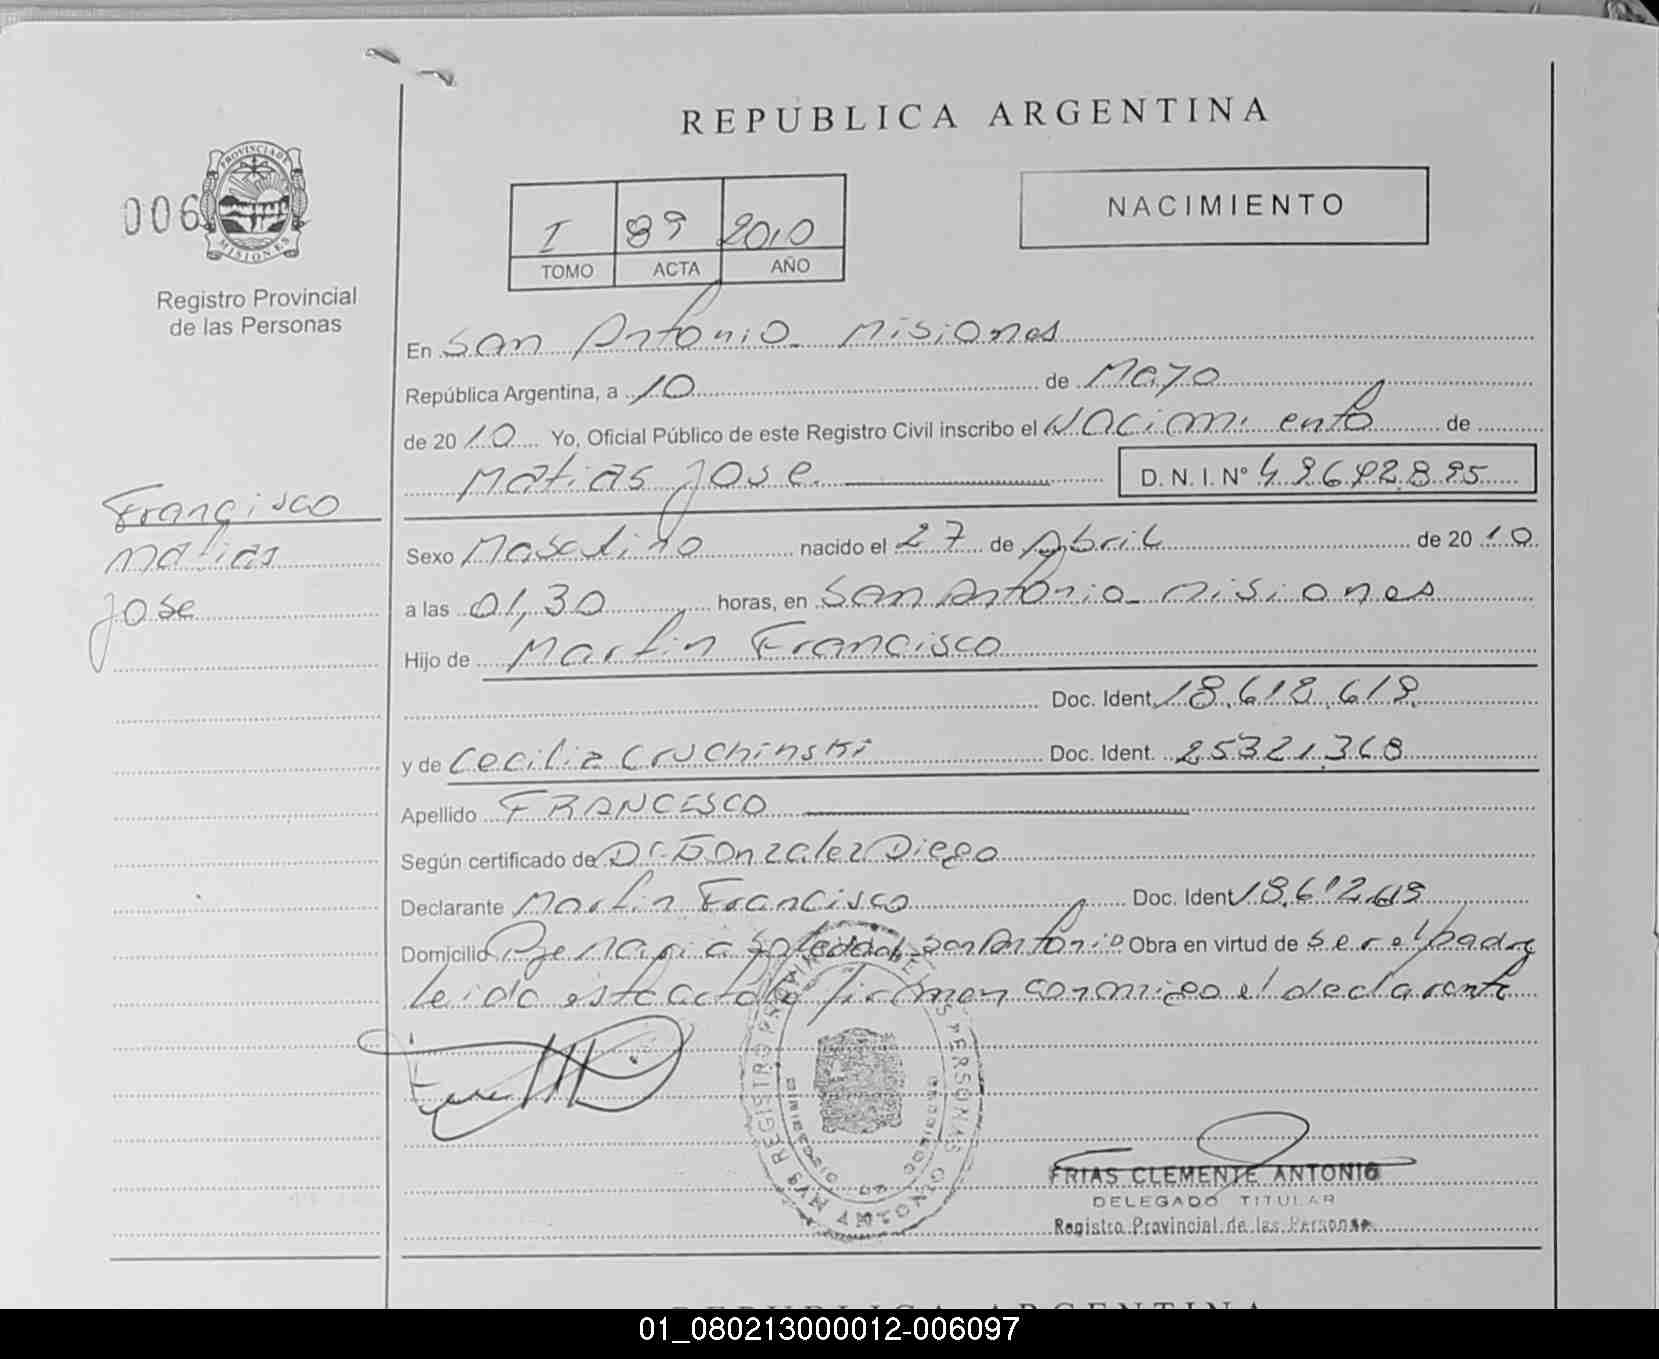 REPUBLICA ARGENTINA
006
PROVINCIA DE MISIONES
Registro Provincial
de las Personas
I 89 2010
TOMO ACTA AÑO
NACIMIENTO
En San Antonio - Misiones
República Argentina, a 10 de Mayo
de 2010 Yo, Oficial Público de este Registro Civil inscribo el Nacimiento de
Matias Jose D. N. I. Nº
Francisco
Matias
Jose
Sexo Masculino nacido el 27 de Abril de 2010
a las 01,30 horas, en San Antonio - Misiones
Hijo de Martin Francisco
Doc. Ident. 18.618.618
y de Cecilia Cruchinski Doc. Ident. 25321368
Apellido FRANCESCO
Según certificado de Dr. Gonzalez Diego
Declarante Martin Francisco Doc. Ident
Domicilio San Antonio Obra en virtud de ser el padre
Leida esta acta la firman conmigo el declarante
REGISTRO PROVINCIAL DE LAS PERSONAS
SAN ANTONIO
FRIAS CLEMENTE ANTONIO
DELEGADO TITULAR
Registro Provincial de las Personas
REPUBLICA ARGENTINA
01_080213000012-006097